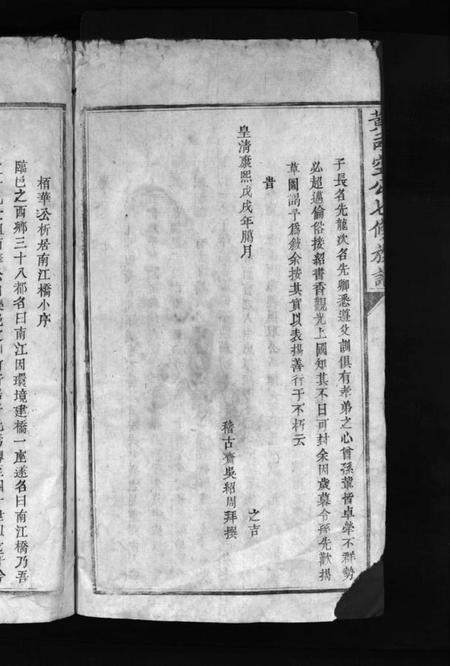 黃司空公七修族譜
子長名先龍次名先卿悉遵父訓俱有孝弟之心曾孫輩皆卓犖不群勢
必超邁倫俗接紹書香觀光上國知其不日可封余因歲暮令孫先歡揚
草圖謁予為敘余按其實以表揚善行于不朽云
旹
皇清康熙戊戌年臈月
之吉
稽古齋吳紹周拜撰
栢華公析居南江橋小序
臨邑之西鄉三十八都名曰南江因環境建橋一座遂名曰南江橋乃吾